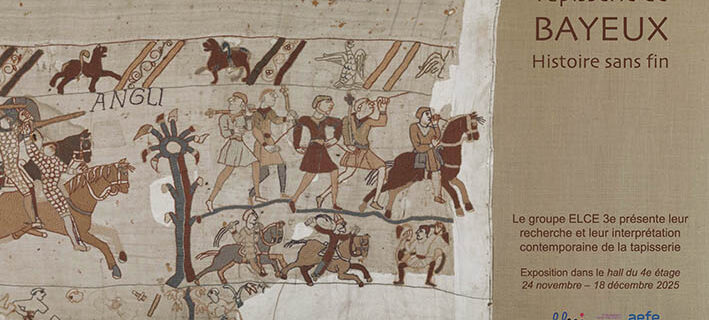 Tapisserie de
BAYEUX
Histoire sans fin
ANGLI
Le groupe ELCE 3e présente leur
recherche et leur interprétation
contemporaine de la tapisserie
Exposition dans le hall du 4e étage
24 novembre – 18 décembre 2025
aefe